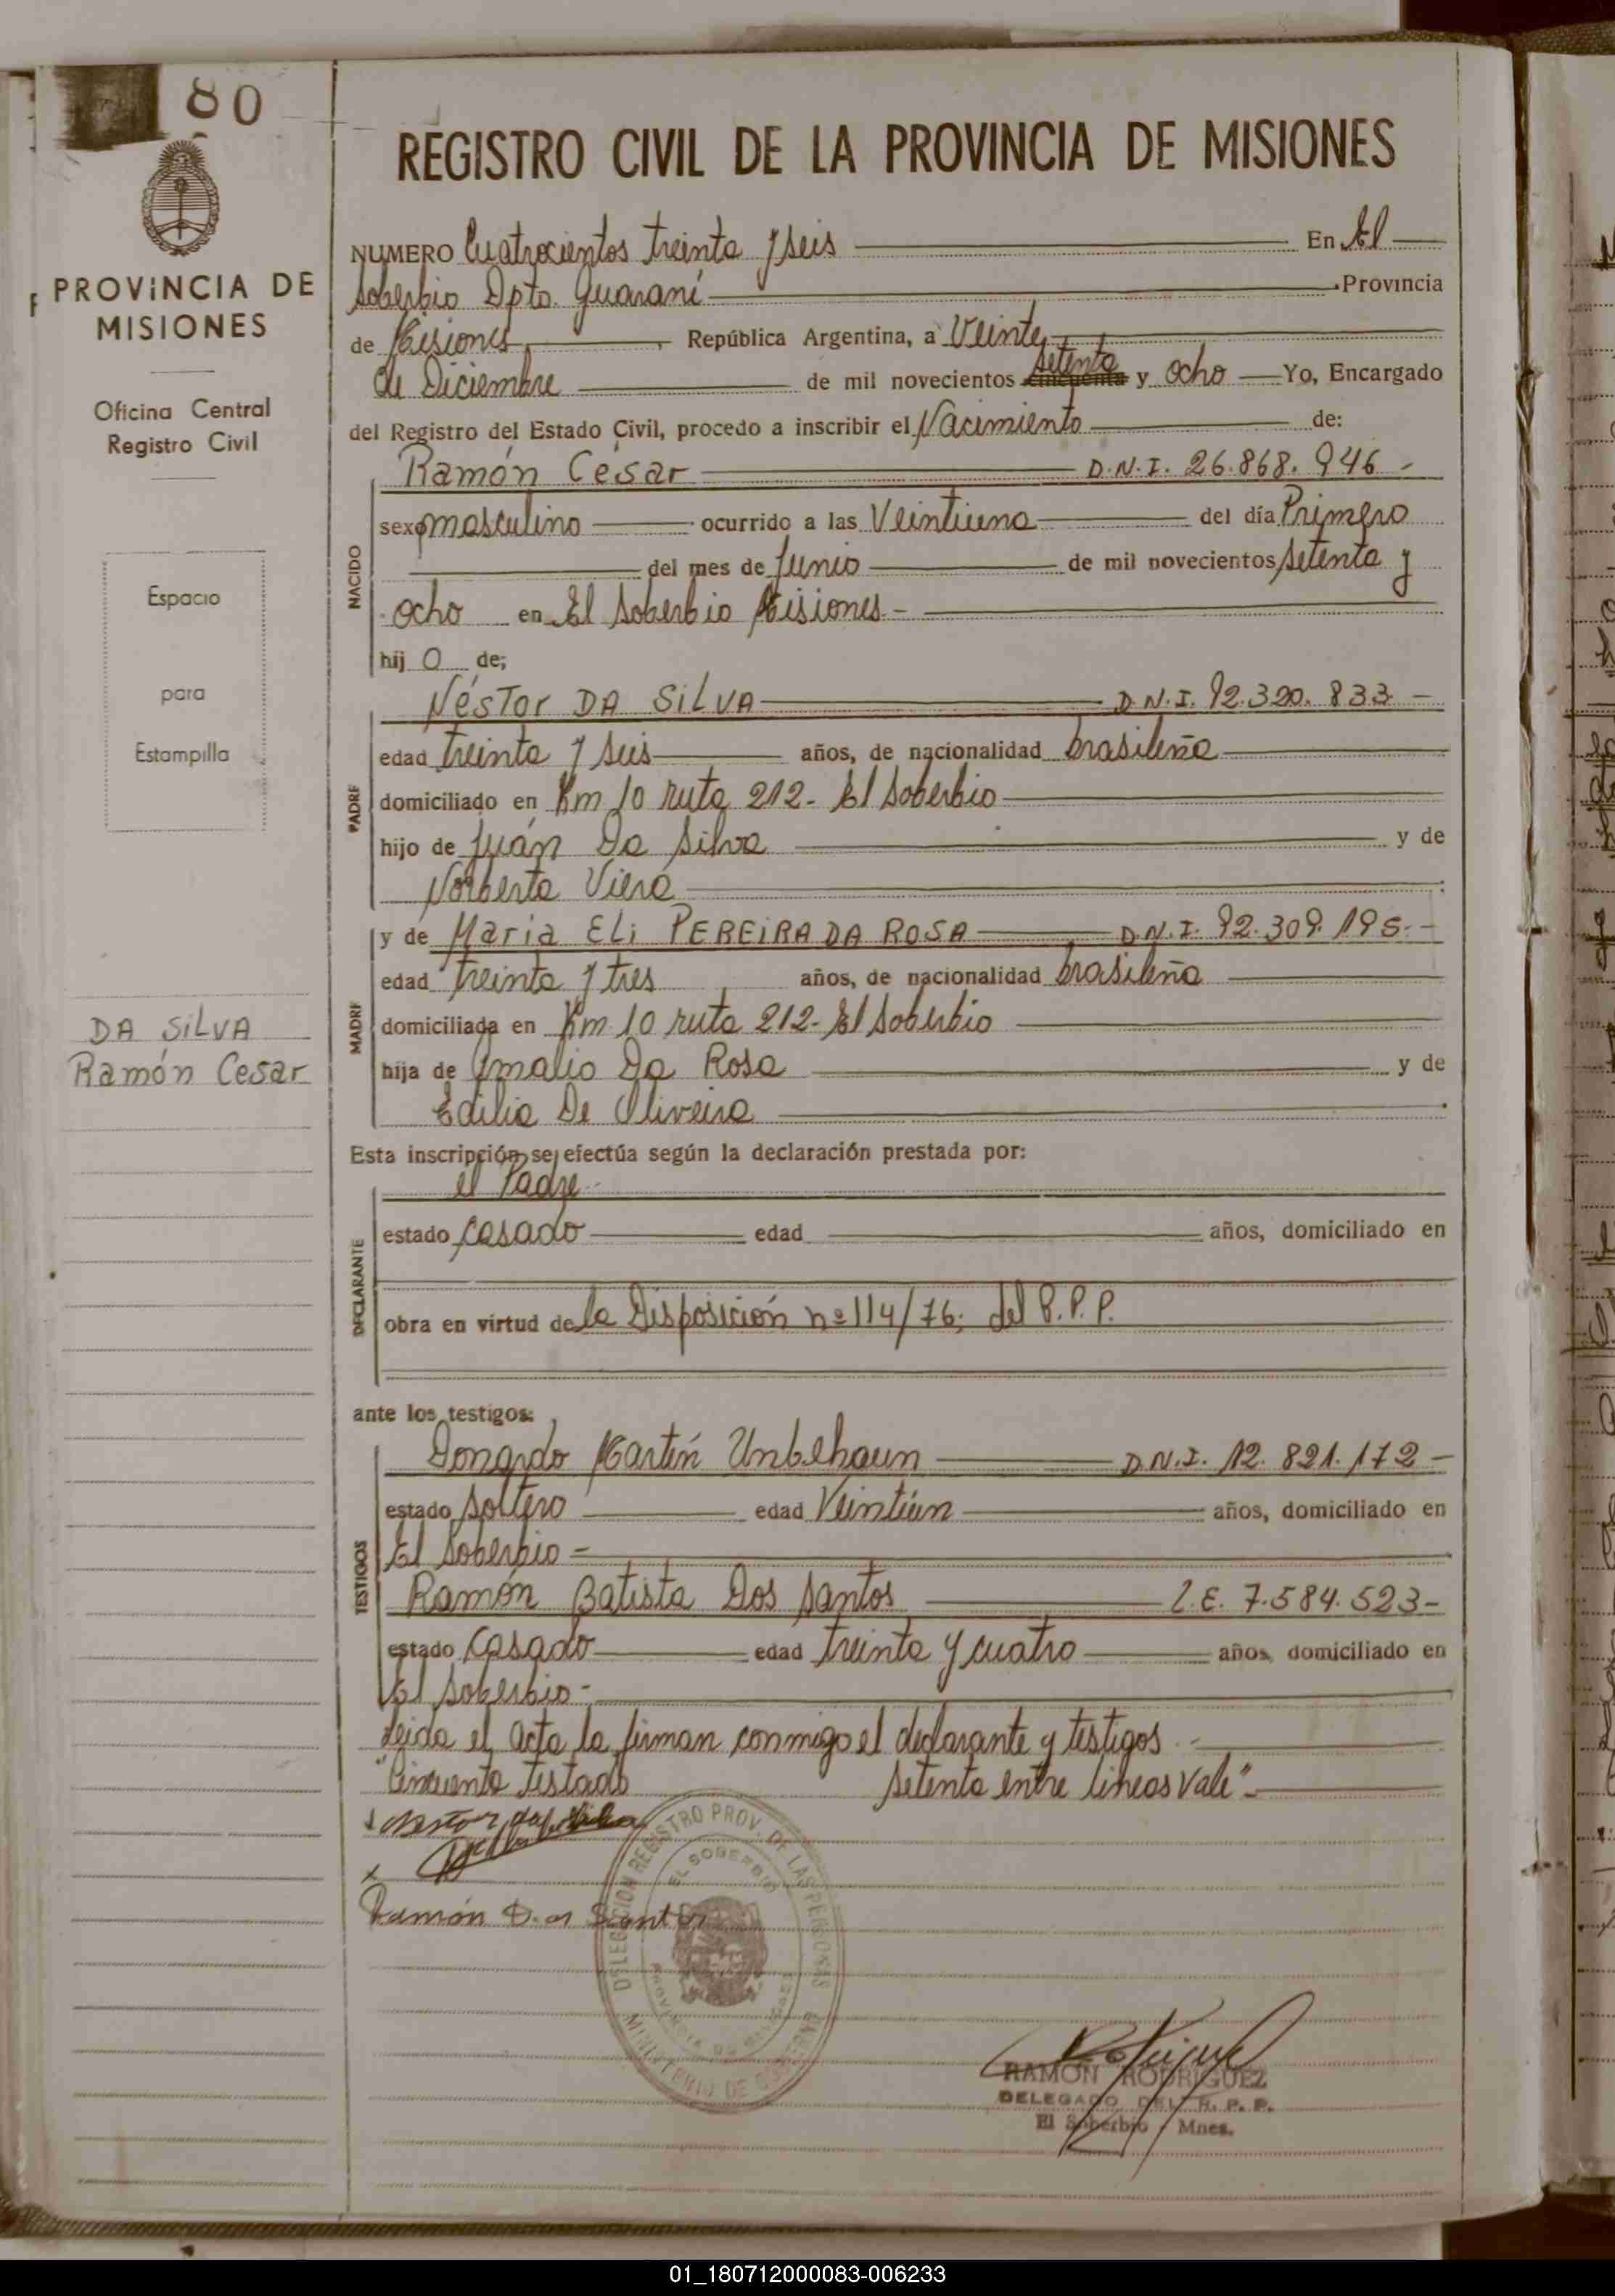 80
PROVINCIA DE
MISIONES
Oficina Central
Registro Civil
Espacio
para
Estampilla
DA SILVA
Ramón Cesar
REGISTRO CIVIL DE LA PROVINCIA DE MISIONES
NUMERO Cuatrocientos treinta y seis En El
Soberbio Dpto. Guaraní Provincia
de Misiones, República Argentina, a Veinte
de Diciembre de mil novecientos setenta cincuenta y ocho Yo, Encargado
del Registro del Estado Civil, procedo a inscribir el Nacimiento de:
NACIDO
Ramón César D.N.I. 26.868.946.-
sexo masculino ocurrido a las Veintiuna del día Primero
del mes de Junio de mil novecientos setenta y
ocho en El Soberbio Misiones.-
hij o de;
PADRE
Néstor DA SILVA D.N.I. 92.320.833.-
edad treinta y seis años, de nacionalidad brasileña
domiciliado en Km 10 ruta 212- El Soberbio
hijo de Juán Da Silva y de
Norberta Viera
MADRE
y de Maria ELi PEREIRA DA ROSA D.N.I. 92.309.195.-
edad treinta y tres años, de nacionalidad brasileña
domiciliada en Km 10 ruta 212- El Soberbio
hija de Amalio Da Rosa y de
Edilia De Oliveira
Esta inscripción se efectúa según la declaración prestada por:
DECLARANTE
el Padre
estado casado edad años, domiciliado en
obra en virtud de la Disposición nº 114/76. del R.P.P.
ante los testigos:
TESTIGOS
Martín Unbehaun D.N.I. 12.821.172-
estado soltero edad Veintiún años, domiciliado en
El Soberbio-
Ramón Batista Dos Santos L.E. 7.584.523-
estado casado edad treinta y cuatro años, domiciliado en
El Soberbio-
Leida el acta la firman conmigo el declarante y testigos.-
"Cincuenta testado setenta entre lineas vale"-
Ramón D. os Santos
DELEGACION REGISTRO PROV. DE LAS PERSONAS
EL SOBERBIO
PROVINCIA DE MISIONES
MINISTERIO DE GOBIERNO
RAMON RODRIGUEZ
DELEGADO DEL R. P. P.
El Soberbio Mnes.
01_180712000083-006233